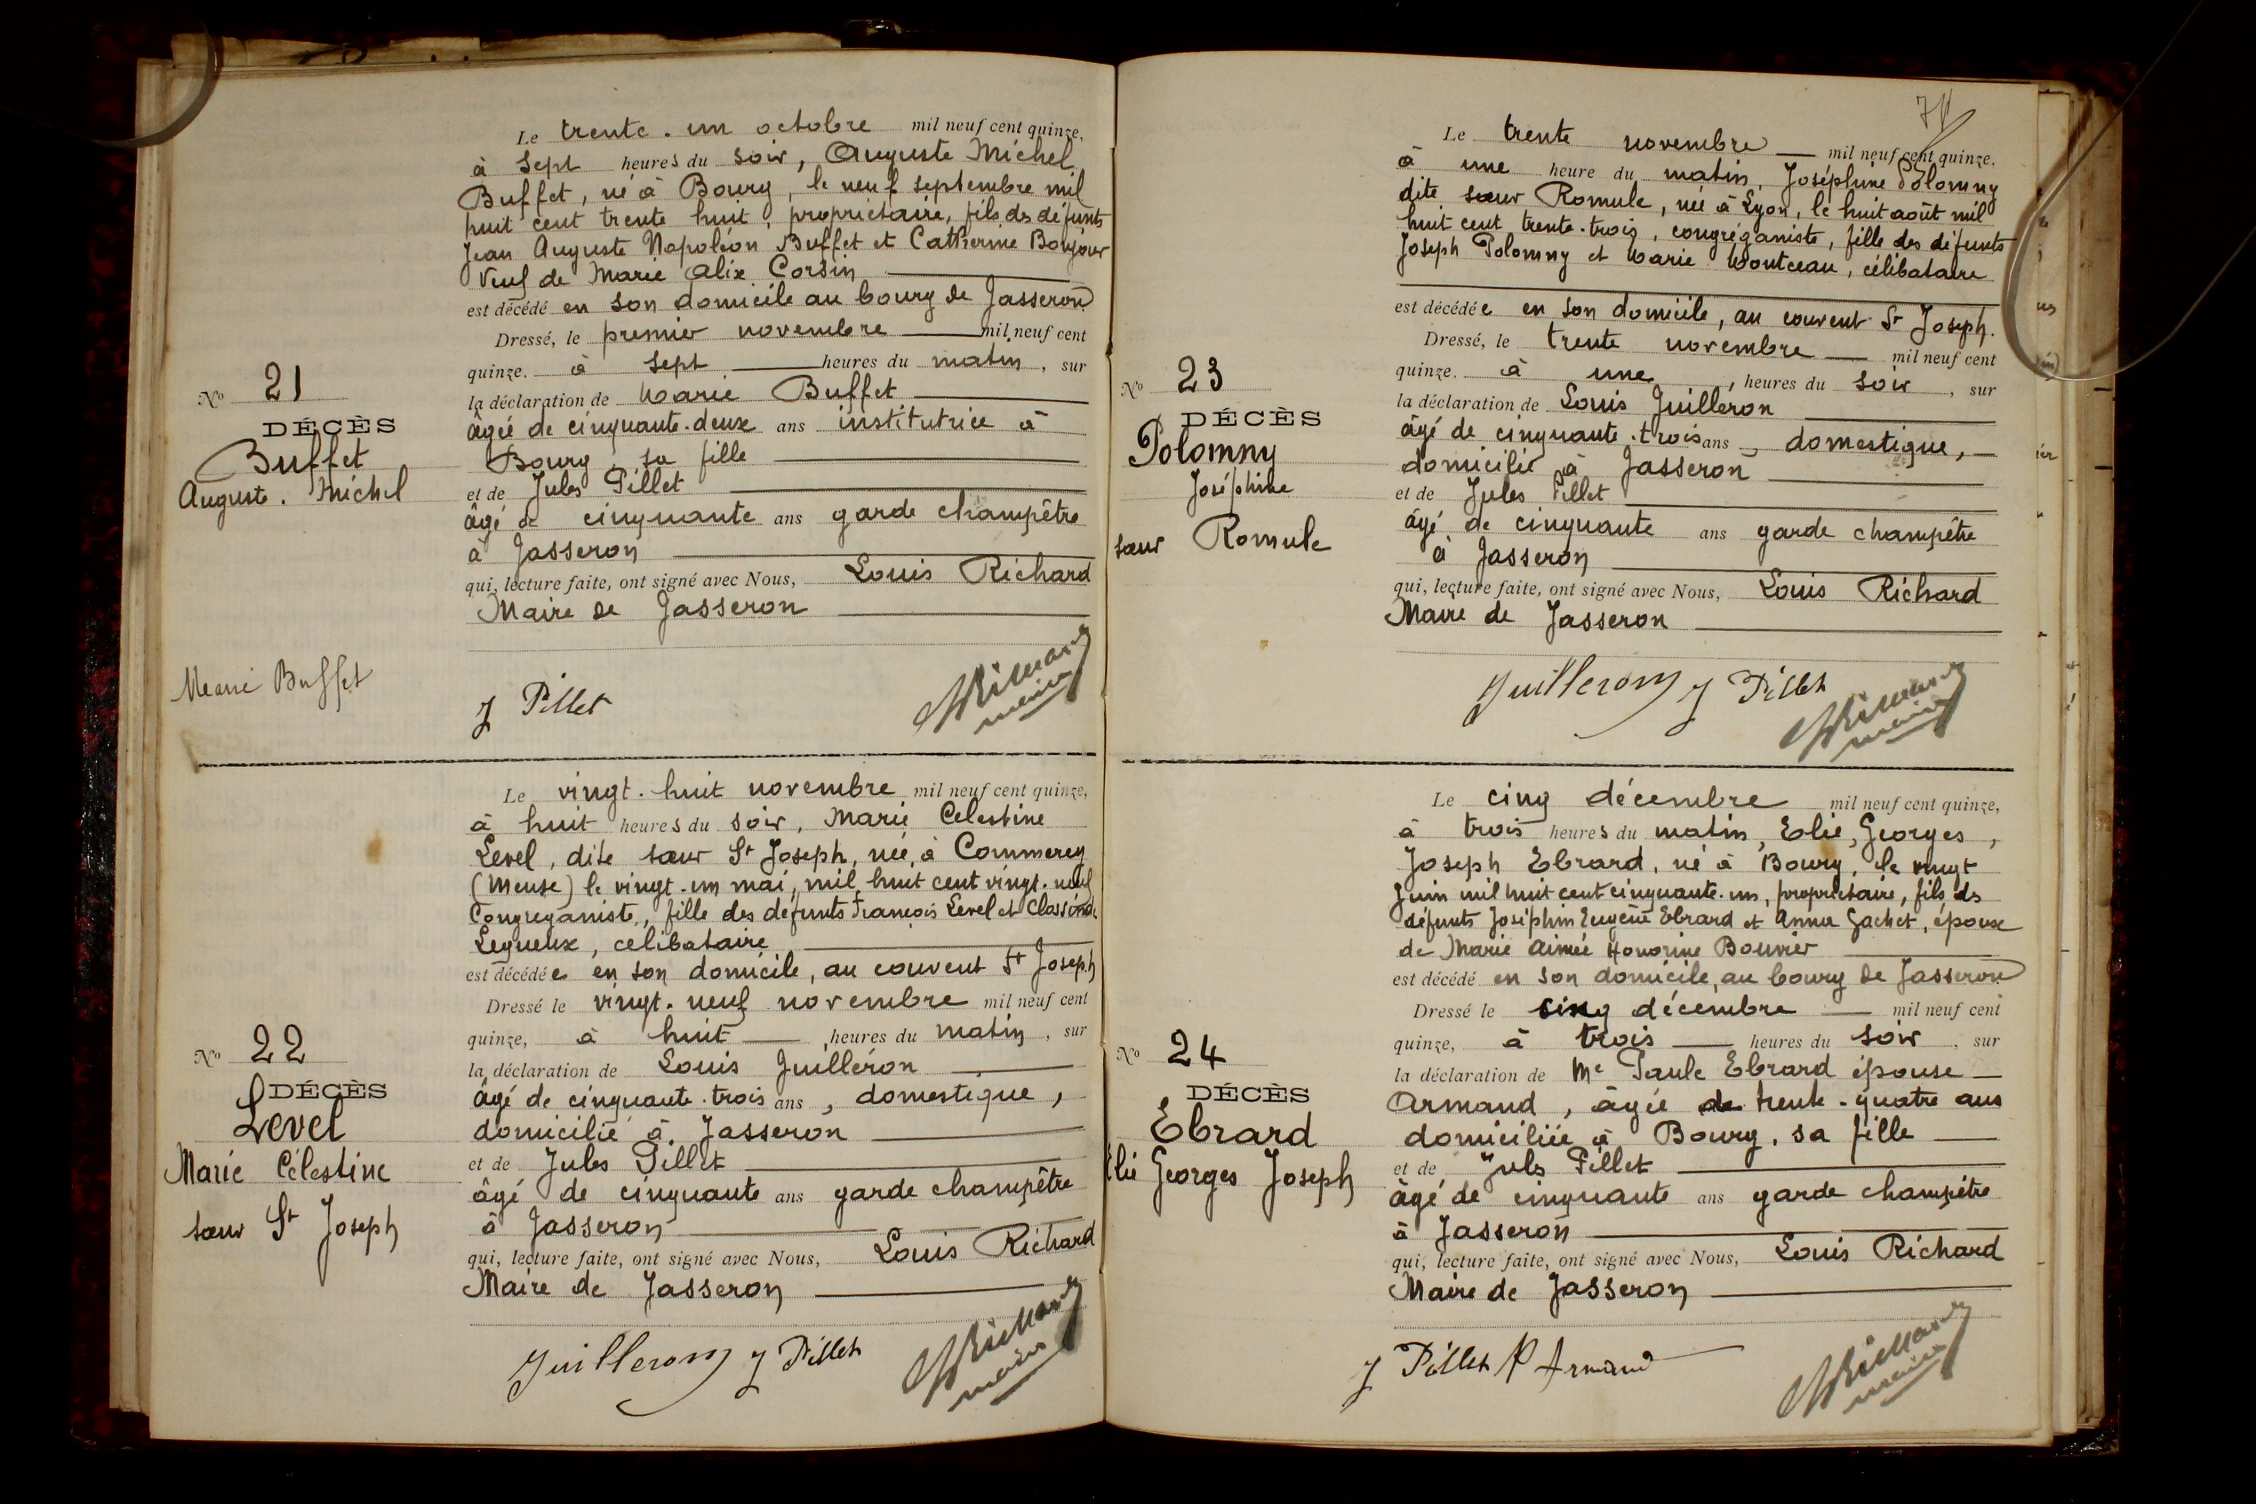 Le trente . un octobre mil neuf cent quinze,
à sept heures du soir, Auguste Michel
Buffet, né à Bourg, le neuf septembre mil
huit cent trente huit, propriétaire, fils des défunts
Jean Auguste Napoléon Buffet et Catherine Bonjour
Veuf de Marie Alix Corsin
est décédé en son domicile au bourg de Jasseron
Dressé, le premier novembre mil neuf cent
quinze. à sept heures du matin, sur
la déclaration de Marie Buffet
âgée de cinquante.deux ans institutrice à
Bourg, sa fille
et de Jules Pillet
âgé de cinquante ans garde champêtre
à Jasseron
qui, lecture faite, ont signé avec Nous, Louis Richard
Maire de Jasseron
No 21
DÉCÈS
Buffet
Auguste . Michel
Marie Buffet
J Pillet
LRichard
maire
Le vingt . huit novembre mil neuf cent quinze,
à huit heures du soir, Marie Celestine
Level, dite sœur St Joseph, née à Commercy
(Meuse) le vingt-un mai, mil huit cent vingt. neuf
Congréganiste, fille des défunts François Level et
Lequeux, célibataire
est décédée en son domicile, au couvent St Joseph
Dressé le vingt. neuf novembre mil neuf cent
quinze, à huit heures du matin, sur
la déclaration de Louis Juilleron
âgé de cinquante.trois ans, domestique,
domicilié à Jasseron
et de Jules Pillet
âgé de cinquante ans garde champêtre
à Jasseron
qui, lecture faite, ont signé avec Nous, Louis Richard
Maire de Jasseron
No 22
DÉCÈS
Level
Marie Célestine
sœur St Joseph
Juilleron J Pillet
LRichard
maire
Le trente novembre mil neuf cent quinze.
à une heure du matin, Joséphine Polomny
dite sœur Romule, née à Lyon, le huit août mil
huit cent trente.trois, congréganiste, fille des défunts
Joseph Polomny et Marie Montceau, célibataire
est décédée en son domicile, au couvent St Joseph.
Dressé, le trente novembre mil neuf cent
quinze. à une heures du soir, sur
la déclaration de Louis Juilleron
âgé de cinquante.trois ans, domestique,
domicilié à Jasseron
et de Jules Pillet
âgé de cinquante ans garde champêtre
à Jasseron
qui, lecture faite, ont signé avec Nous, Louis Richard
Maire de Jasseron
No 23
DÉCÈS
Polomny
Joséphine
sœur Romule
Juilleron J Pillet
LRichard
maire
Le cinq décembre mil neuf cent quinze,
à trois heures du matin, Elie, Georges,
Joseph Ebrard, né à Bourg, le vingt
Juin mil huit cent cinquante.un, propriétaire, fils des
défunts Joséphin Eugène Ebrard et Anna Gachet, époux
de Marie Aimée Honorine Bouvier
est décédé en son domicile, au bourg de Jasseron
Dressé le cinq décembre mil neuf cent
quinze, à trois heures du soir, sur
la déclaration de Me Paule Ebrard épouse
Armand, âgée de trente-quatre ans
domiciliée à Bourg, sa fille
et de Jules Pillet
âgé de cinquante ans garde champêtre
à Jasseron
qui, lecture faite, ont signé avec Nous, Louis Richard
Maire de Jasseron
No 24
DÉCÈS
Ebrard
Elie Georges Joseph
J Pillet P Armand
LRichard
maire